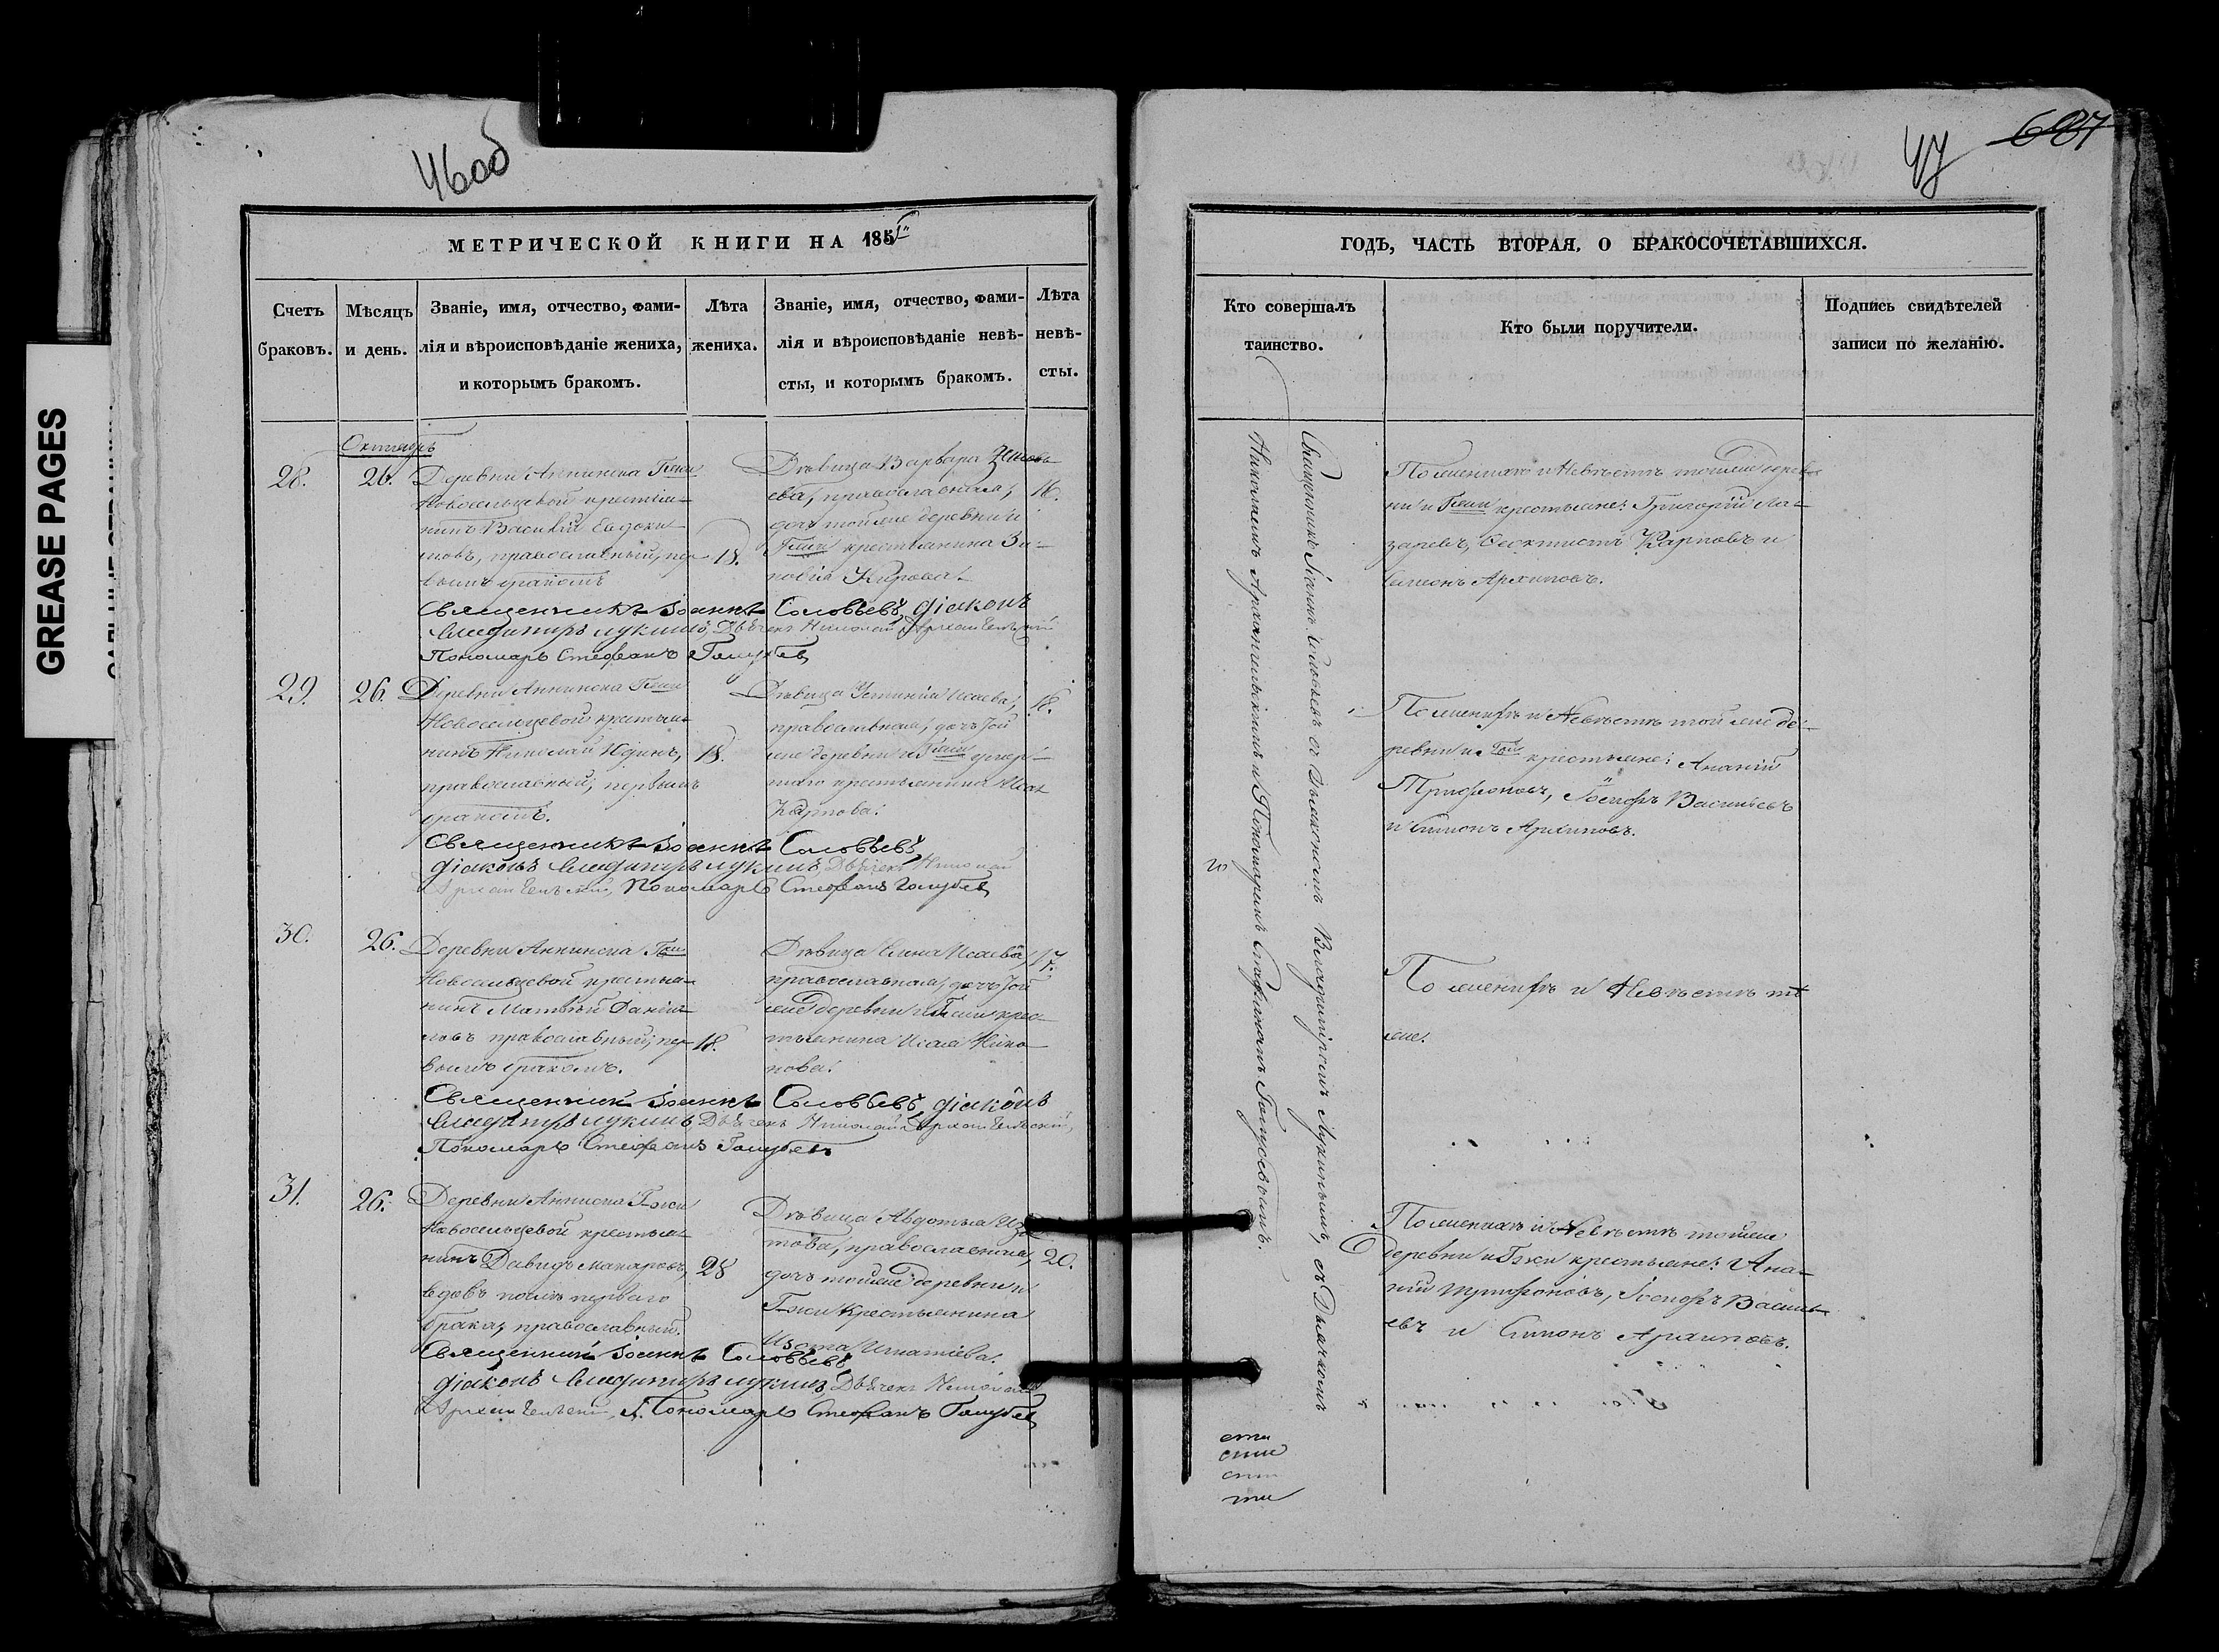 GREASE PAGES
46об
МЕТРИЧЕСКОЙ КНИГИ НА 1851
Счетъ браковъ.
Мѣсяцъ и день.
Званіе, имя, отчество, фами-
лія и вѣроисповѣданіе жениха,
и которымъ бракомъ.
Лѣта жениха.
Званіе, имя, отчество, фами-
лія и вѣроисповѣданіе невѣ-
сты, и которымъ бракомъ.
Лѣта невѣ-
сты.
Октябрь
28.
26.
Деревни Аннинска Гжи
Новосельцевой крестья-
нинъ Василій Евдоки-
мовъ, православный, пер-
вымъ бракомъ
18.
Дѣвица Варвара Зиновь
ева, православная,
дочь тойже деревни и
Гжи крестьянина Зи-
новія Карпова.
16.
Священникъ Іоаннъ Соловьевъ, діаконъ
Владимиръ Лукинъ, Дьячекъ Николай Архангельскій
Пономарь Стефанъ Голубев
29.
26.
Деревни Аннинска Гжи
Новосельцевой крестья-
нинъ Николай Юдинъ,
православный, первымъ
бракомъ.
18.
Дѣвица Устинія Исаева,
православная, дочь той
же деревни и Гжи умер-
шаго крестьянина Исая
Карпова.
18.
Священникъ Іоаннъ Соловьевъ
діаконъ Владимиръ Лукинъ, Дьячекъ Николай
Архангельский, Пономарь Стефанъ Голубев
30.
26.
Деревни Аннинска Гжи
Новосельцевой крестья-
нинъ Матвѣй Данги-
ловъ православный, пер-
вымъ бракомъ.
18.
Дѣвица Елена Исаева
православная, дочь той
же деревни и Гжи крес-
тьянина Исая Нико
нова.
17.
Священник Іоаннъ Соловьевъ, діаконъ
Владимиръ Лукинъ, Дьячекъ Николай Архангельский,
Пономарь Стефанъ Голубев
31.
26.
Деревни Аннинска Гжи
Новосельцевой крестья-
нинъ Давидъ Макаровъ,
вдовъ послѣ перваго
брака, православный.
28
Дѣвица Авдотья Изо
това, православная,
дочь тойже деревни и
Гжи крестьянина
Изота Игнатіева.
20.
Священник Іоаннъ Соловьевъ
діаконъ Владимиръ Лукинъ, Дьячекъ Николай
Архангельский, Пономарь Стефанъ Голубев
47
687
ГОДЪ, ЧАСТЬ ВТОРАЯ, О БРАКОСОЧЕТАВШИХСЯ.
Кто совершалъ таинство.
Кто были поручители.
Подпись свидѣтелей
записи по желанію.
Священникъ Іоаннъ Соловьевъ съ Дьякономъ Владиміромъ Лукинымъ, съ Дьячкомъ
Николаемъ Архангельскимъ и Пономаремъ Стефаномъ Голубевымъ.
По женихѣ и Невѣстѣ тойже дерев-
ни и Гжи крестьяне: Григорій Ла-
заревъ, Феоктистъ Карповъ и
Симонъ Архиповъ.
По женихѣ и Невѣстѣ той же де-
ревни и Гжи крестьяне: Ананій
Трифоновъ, Іосифъ Васильевъ
и Симонъ Архиповъ.
По женихѣ и Невѣстѣ тѣ
же.
По женихѣ и Невѣстѣ тойже
деревни и Гжи крестьяне: Ана-
ній Трифоновъ, Іосифъ Василь-
евъ и Симонъ Архиповъ.